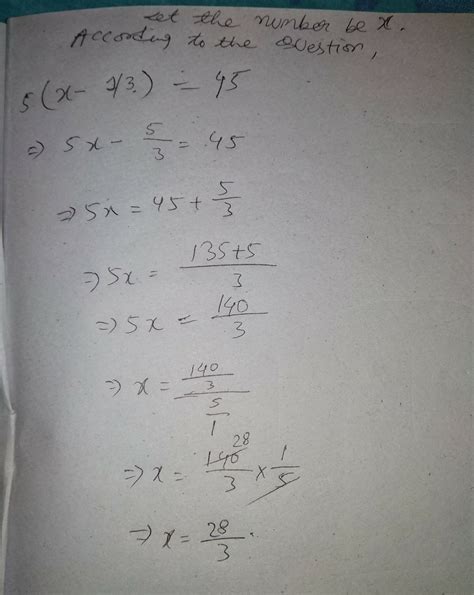 Let the number be x.
According to the Question,
5(x - 1/3.) = 45
⇒ 5x - 5/3 = 45
⇒ 5x = 45 + 5/3
⇒ 5x = 135+5/3
⇒ 5x = 140/3
⇒ x = 140/3 / 5/1
⇒ x = 140/3 × 1/5 28
⇒ x = 28/3.